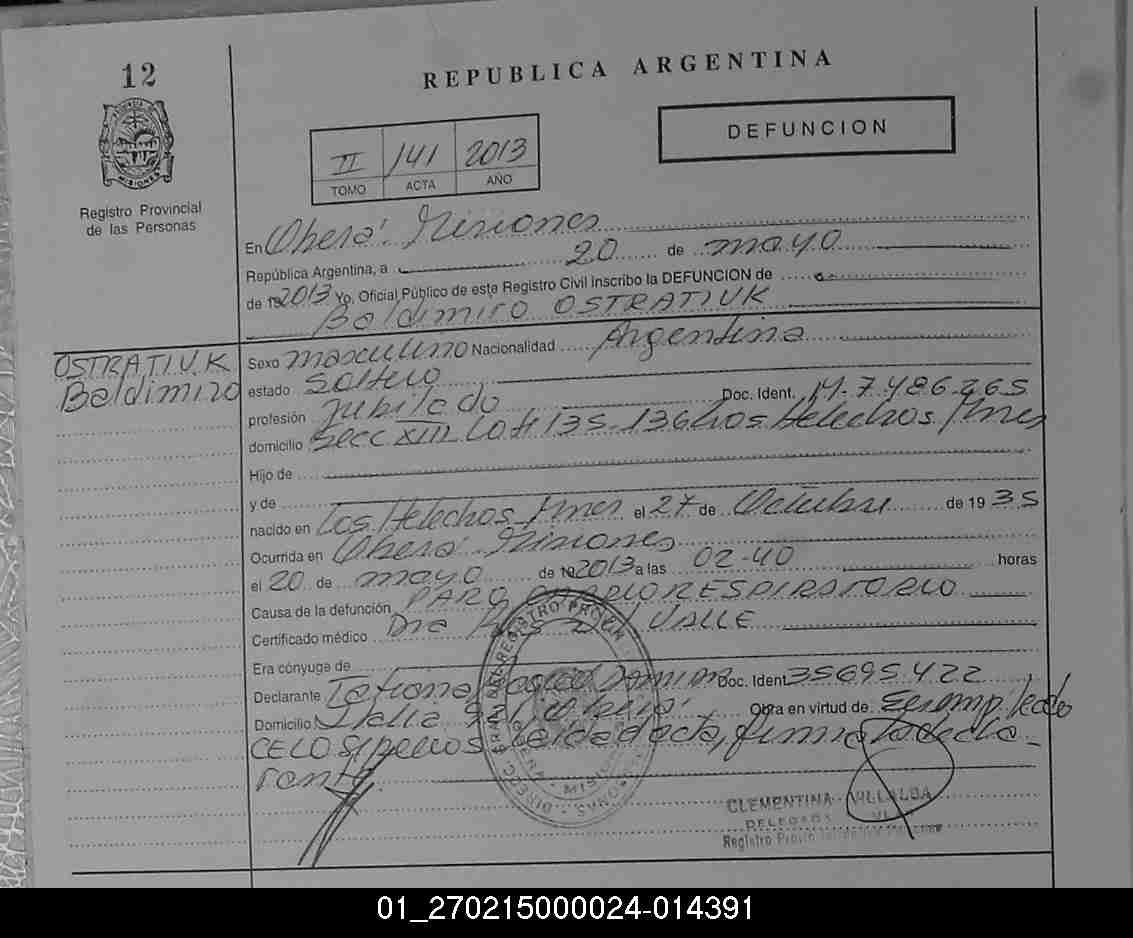 12
REPUBLICA ARGENTINA
DEFUNCION
II 141 2013
TOMO ACTA AÑO
Registro Provincial
de las Personas
MISIONES
En Oberá. Misiones
República Argentina, a 20 de mayo
de 19 2013 Yo, Oficial Público de este Registro Civil Inscribo la DEFUNCION de
Baldimiro OSTRATIUK
OSTRATIUK
Baldimiro
Sexo masculino Nacionalidad Argentina
estado Soltero
profesión Jubilado Doc. Ident. M-7.486.265
domicilio Secc XIII Lote 135-136 Los Helechos. Mnes
Hijo de
y de
nacido en Los Helechos Mnes el 27 de Octubre de 1935
Ocurrida en Oberá. Misiones
el 20 de mayo de 19 2013 a las 02-40 horas
Causa de la defunción PARO CARDIORESPIRATORIO
Certificado médico Dra VALLE
Era cónyuge de
Declarante Tatiana Doc. Ident 35695.422
Domicilio Italia Oberá Obra en virtud de Ser empleado
CELO Sepelios Leida el acta, firma la decla-
rante
CLEMENTINA VILLALBA
DELEGADA
Registro Provincial
01_270215000024-014391